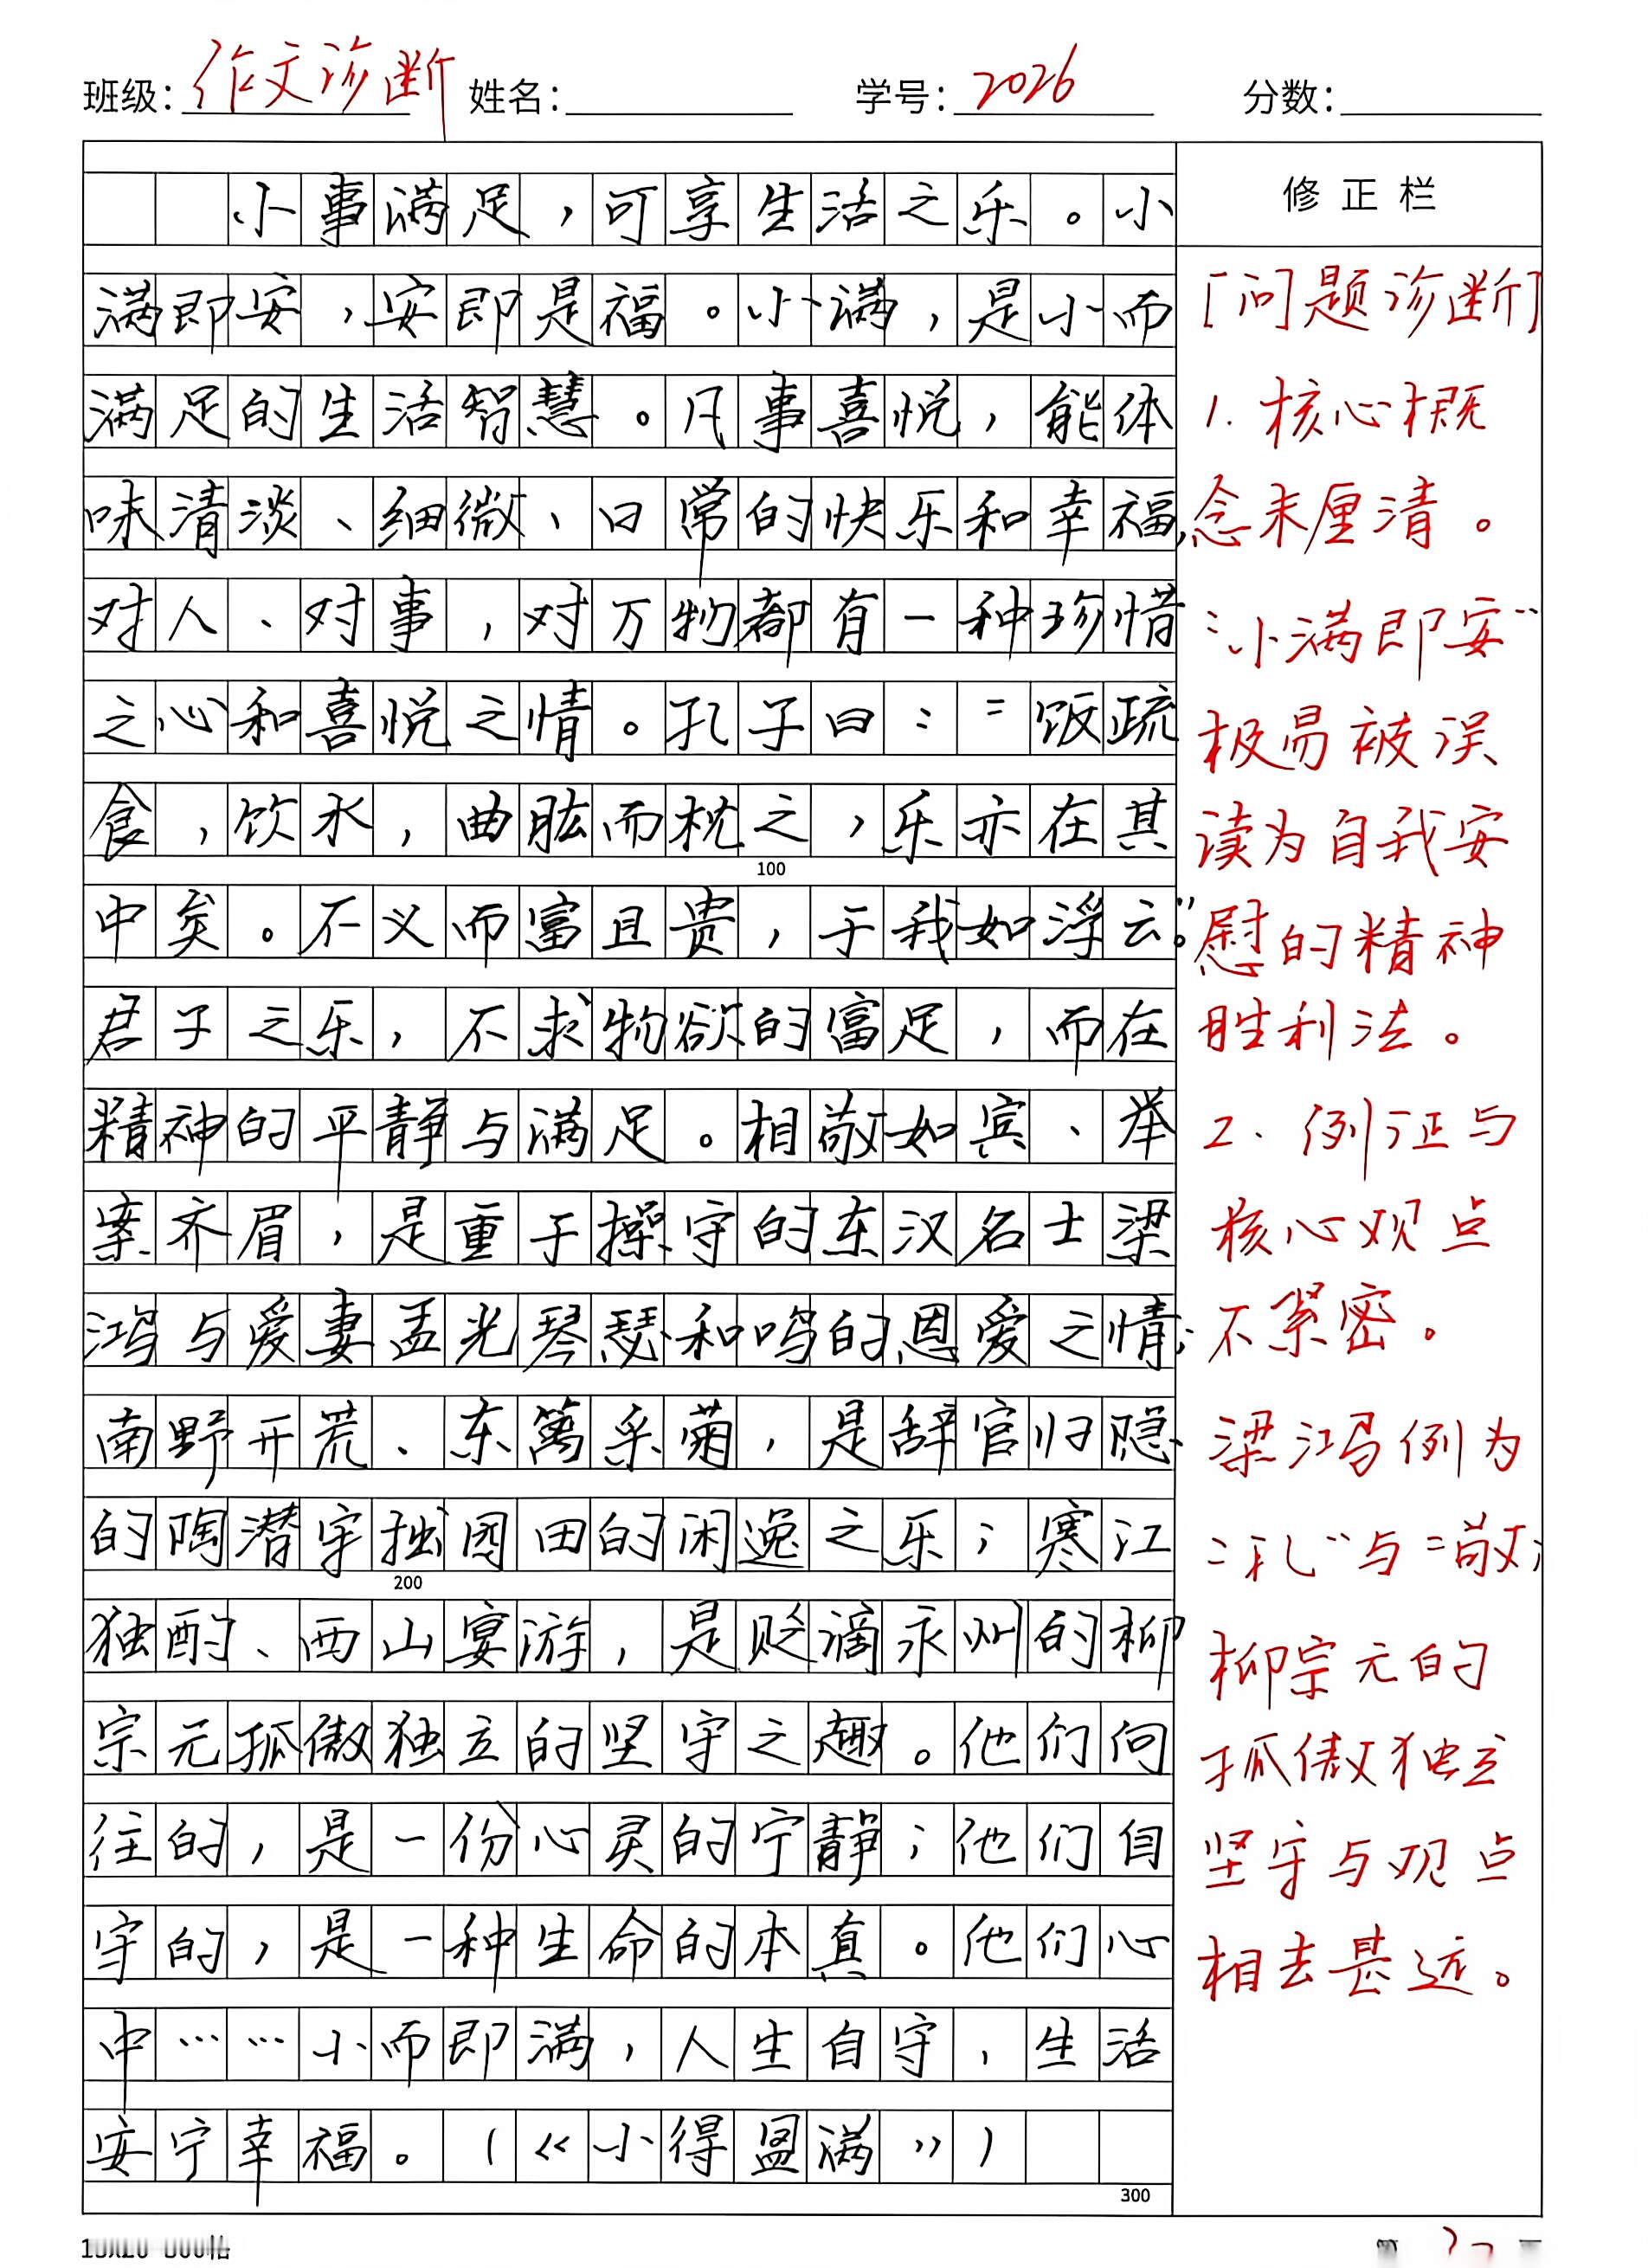 班级：作文诊断 姓名： 学号：2026 分数：
小事满足，可享生活之乐。小
满即安，安即是福。小满，是小而
满足的生活智慧。凡事喜悦，能体
味清淡、细微、日常的快乐和幸福，
对人、对事，对万物都有一种珍惜
之心和喜悦之情。孔子曰：“饭疏
食，饮水，曲肱而枕之，乐亦在其
100
中矣。不义而富且贵，于我如浮云。”
君子之乐，不求物欲的富足，而在
精神的平静与满足。相敬如宾、举
案齐眉，是重于操守的东汉名士梁
鸿与爱妻孟光琴瑟和鸣的恩爱之情；
南野开荒、东篱采菊，是辞官归隐
的陶潜守拙园田的闲逸之乐；寒江
200
独酌、西山宴游，是贬谪永州的柳
宗元孤傲独立的坚守之趣。他们向
往的，是一份心灵的宁静；他们自
守的，是一种生命的本真。他们心
中……小而即满，人生自守，生活
安宁幸福。（《小得盈满》）
300
修正栏
[问题诊断]
1.核心概
念未厘清。
“小满即安”
极易被误
读为自我安
慰的精神
胜利法。
2、例证与
核心观点
不紧密。
梁鸿例为
“礼”与“敬；
柳宗元的
孤傲独立
坚守与观点
相去甚远。